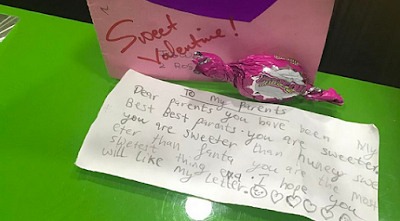 Sweet
Valentine!
To My Parents
Dear parents you have been my
Best best parents. you are sweeter.
you are sweeter than huney swe
eter than fanta you are the most
sweetest thing and I hope you
will like my Letter.